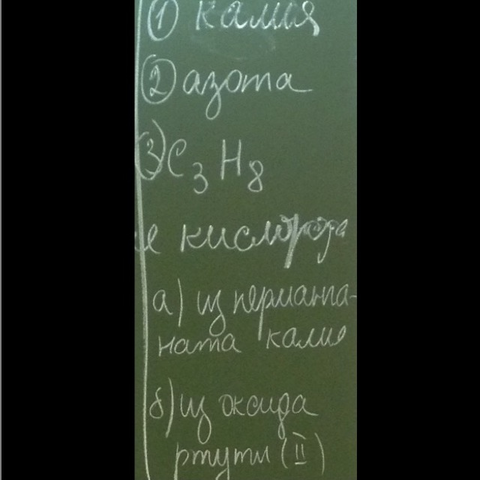 ① калия
② азота
③ C₃H₈
кислорода
а) из перманга-
ната калия
б) из оксида
ртути (II)